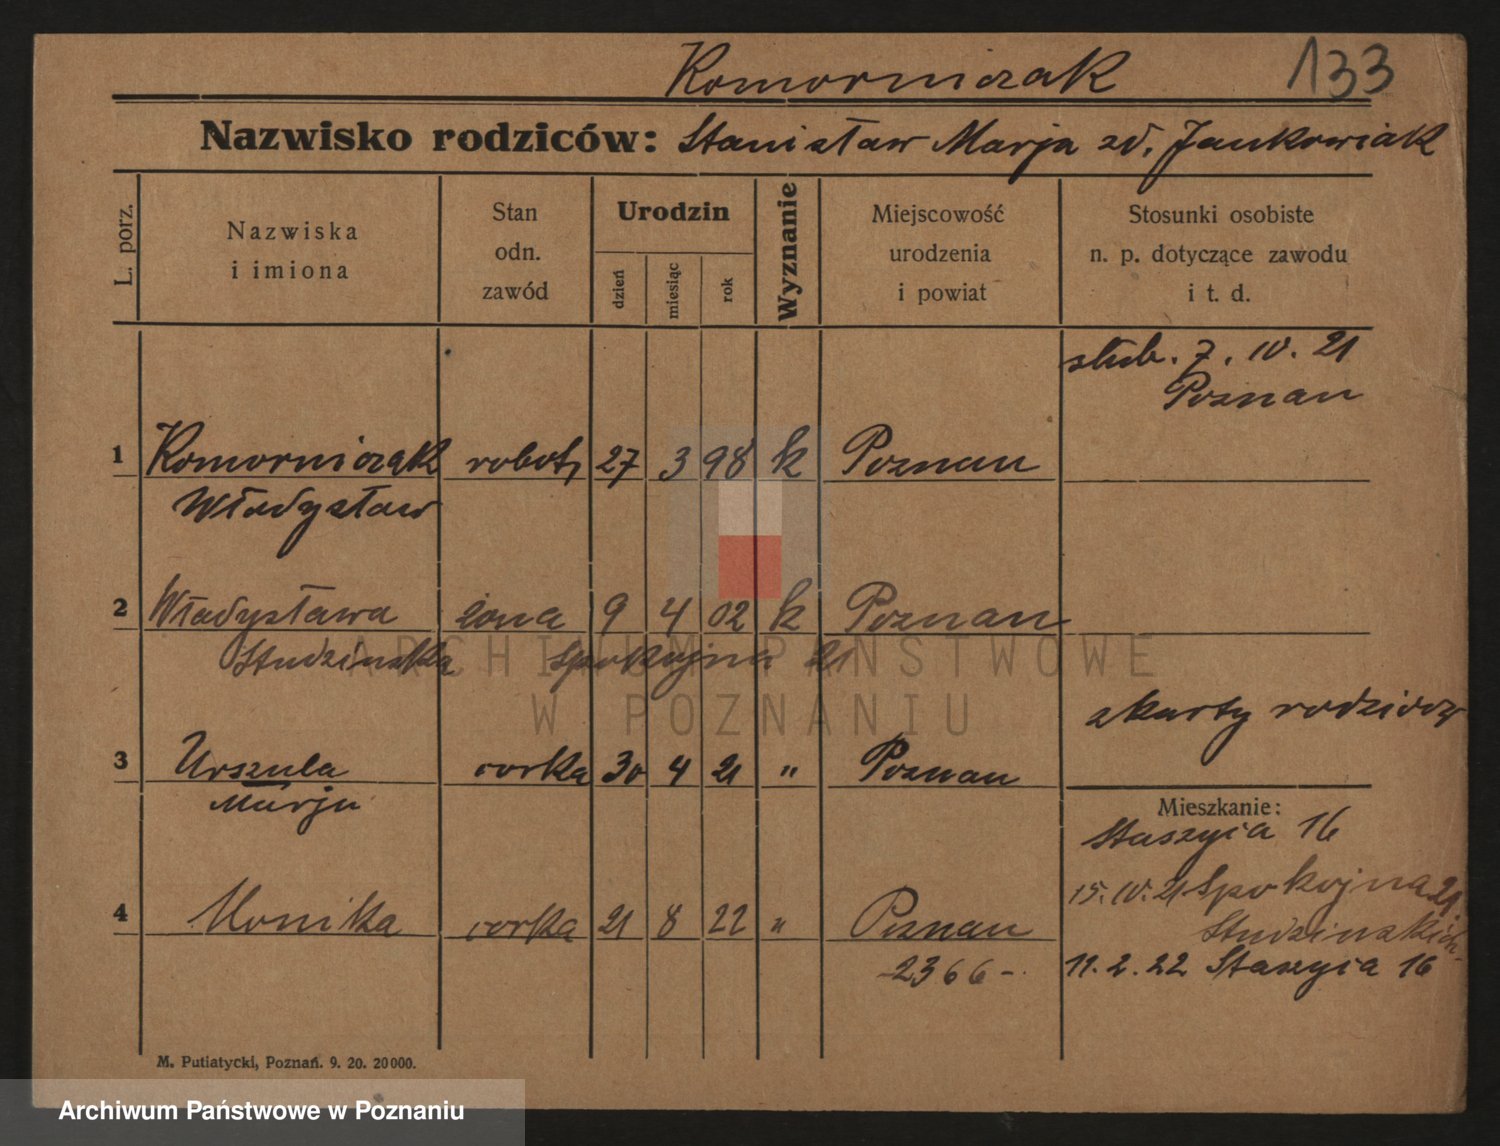 Komorniczak 133
Nazwisko rodziców: Stanisław Marja zd. Jankowiak
L. porz.
Nazwiska
i imiona
Stan
odn.
zawód
Urodzin
dzień
miesiąc
rok
Wyznanie
Miejscowość
urodzenia
i powiat
Stosunki osobiste
n. p. dotyczące zawodu
i t. d.
ślub. 7. IV. 21
Poznan
1 Komorniczak robot, 27 3 98 k Poznan
Władysław
2 Władysława żona 9 4 02 k Poznan
Studzinska Spokojna 21
ARCHIWUM PAŃSTWOWE
W POZNANIU
z karty rodziców
3 Urszula corka 30 4 21 " Poznan
Marja
Mieszkanie:
Staszyca 16
15. IV. 21 Spokojna 21
4 Monika corka 21 8 22 " Poznan
Studzinskich
-2366-
11. 2. 22 Staszyca 16
M. Putiatycki, Poznań. 9. 20. 20000.
Archiwum Państwowe w Poznaniu